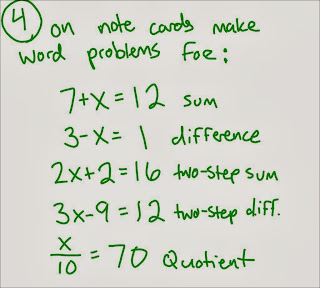 4 on note cards make
word problems for:
7+x=12 sum
3-x= 1 difference
2x+2=16 two-step sum
3x-9=12 two-step diff.
x/10 = 70 Quotient